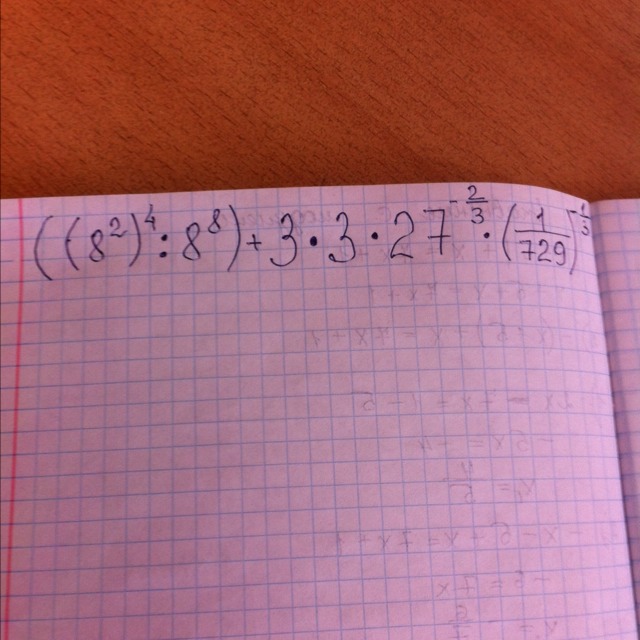 ((8²)⁴:8⁸)+3·3·27^(-2/3)·(1/729)^(-1/3)